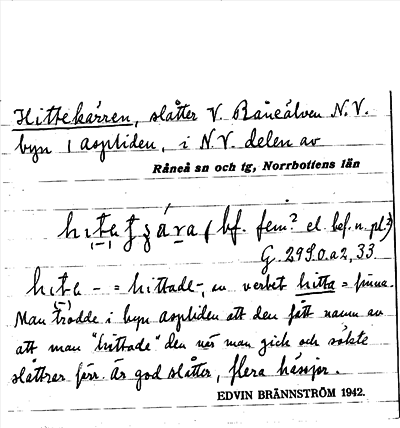 Hittekärren, slåtter V. Råneälven N.V.
byn 1 aspliden, i N.V. delen av
Råneå sn och tg, Norrbottens län
hıta (bf. fem.? el. bef. n. pl.?)
G. 299.0.a2, 33.
hıta - = hittade-, av verbet hitta = finna.
Man trodde i byn aspliden att den fått namn av
att man "hittade" den när man gick och sökte
slåttrar förr. Är god slåtter, flera hässjor.
EDVIN BRÄNNSTRÖM 1942.